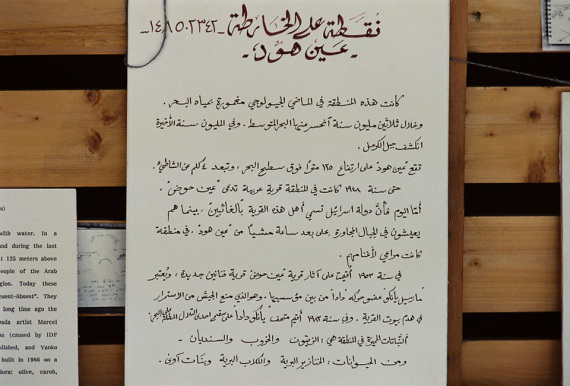 نقطة على الخارطة -١٤٨٥٠٢٣٤٢-
- عين هود -
كانت هذه المنطقة في الماضي الجيولوجي مغمورة بمياه البحر .
وخلال ثلاثين مليون سنة أنحسر عنها البحر المتوسط . وفي المليون سنة الأخيرة
انكشف جبل الكرمل .
تقع عين هود على ارتفاع ١٢٥ مترًا فوق سطح البحر ، وتبعد ٤ كلم عن الشاطئ .
حتى سنة ١٩٤٨ كانت في المنطقة قرية عربية تدعى "عين حوض" .
أما اليوم فأنّ دولة اسرائيل تسمي أهل هذه القرية بـ"الغائبين" . بينما هم
يعيشون في الجبال المجاورة على بعد ساعة مشيًا من "عين هود" . في منطقة
كانت مراعي لأغنامهم .
في سنة ١٩٥٣ أقيمت على آثار قرية عين حوض قرية فنانين جديدة ، ويُعتبر
مارسيل يانكو عضو حركة "دادا" من بين مؤسسيها . وهو الذي منع الجيش من الاستمرار
في هدم بيوت القرية . وفي سنة ١٩٨٣ أقيم متحف يانكو دادا على
النباتات المميزة في المنطقة هي : الزيتون والخروب والسنديان -
ومن الحيوانات : الخنازير البرية والكلاب البرية وبنات آوى .
with water. In a
nd during the last
t 125 meters above
people of the Arab
gion. Today these
esent-Absent". They
long time ago the
ada artist Marcel
on (caused by IDF
lished, and Yanko
built in 1986 on a
lora: olive, carob,